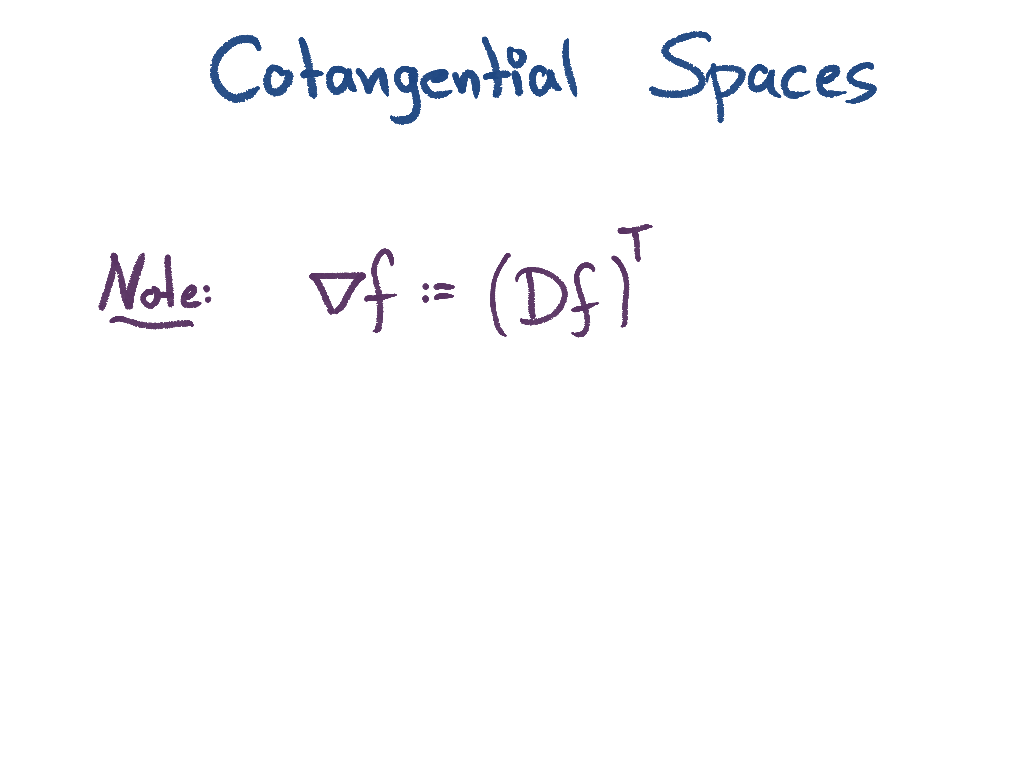 Cotangential Spaces
Note: ∇f := (Df)ᵀ